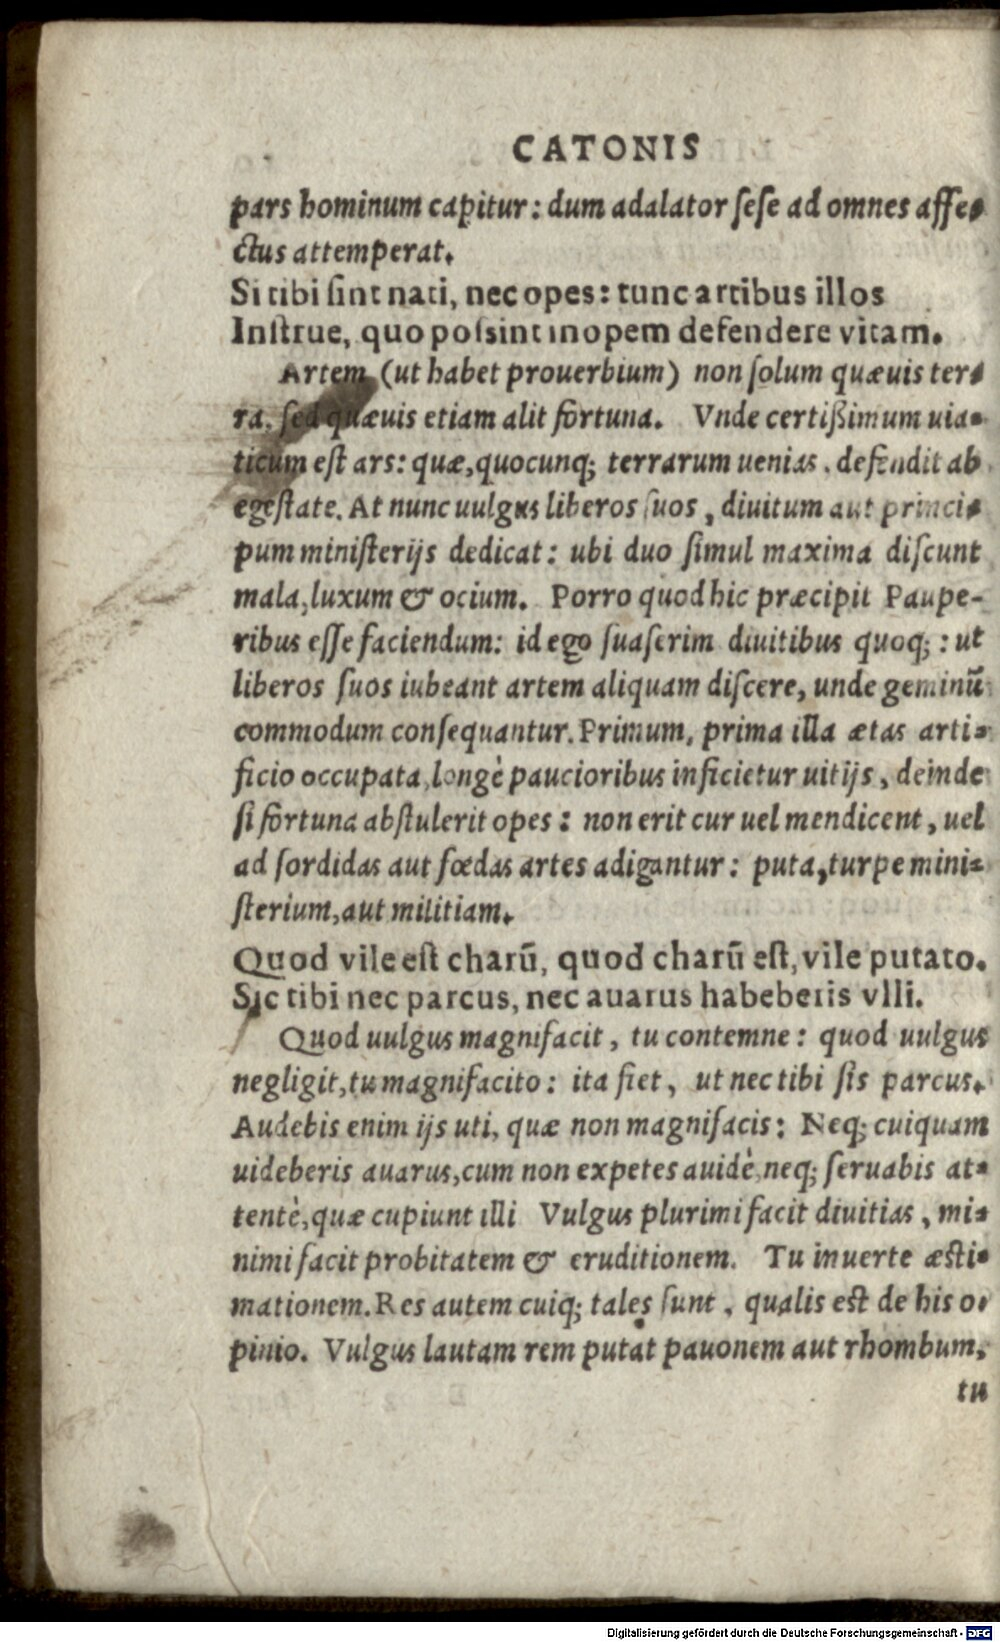 CATONIS
pars hominum capitur: dum adalator ſeſe ad omnes affe-
ctus attemperat.
Si tibi ſint nati, nec opes: tunc artibus illos
Inſtrue, quo poſsint inopem defendere vitam.
Artem (ut habet prouerbium) non ſolum quæuis ter-
ra, ſed quæuis etiam alit fortuna. Vnde certißimum uia-
ticum eſt ars: quæ, quocunq; terrarum uenias, defendit ab
egeſtate. At nunc uulgus liberos ſuos, diuitum aut princi-
pum miniſterijs dedicat: ubi duo ſimul maxima diſcunt
mala, luxum & ocium. Porro quod hic præcipit Paupe-
ribus eſſe faciendum: id ego ſuaſerim diuitibus quoq;: ut
liberos ſuos iubeant artem aliquam diſcere, unde geminū
commodum conſequantur. Primum, prima illa ætas arti-
ficio occupata, longè paucioribus inficietur uitijs, deinde
ſi fortuna abſtulerit opes: non erit cur uel mendicent, uel
ad ſordidas aut fœdas artes adigantur: puta, turpe mini-
ſterium, aut militiam.
Quod vile eſt charū, quod charū eſt, vile putato.
Sic tibi nec parcus, nec auarus habeberis vlli.
Quod uulgus magnifacit, tu contemne: quod uulgus
negligit, tu magnifacito: ita fiet, ut nec tibi ſis parcus.
Audebis enim ijs uti, quæ non magnifacis: Neq; cuiquam
uideberis auarus, cum non expetes auidè, neq; ſeruabis at-
tentè, quæ cupiunt illi Vulgus plurimi facit diuitias, mi-
nimi facit probitatem & eruditionem. Tu inuerte æſti-
mationem. Res autem cuiq; tales ſunt, qualis eſt de his o-
pinio. Vulgus lautam rem putat pauonem aut rhombum,
tu
Digitalisierung gefördert durch die Deutsche Forschungsgemeinschaft - DFG